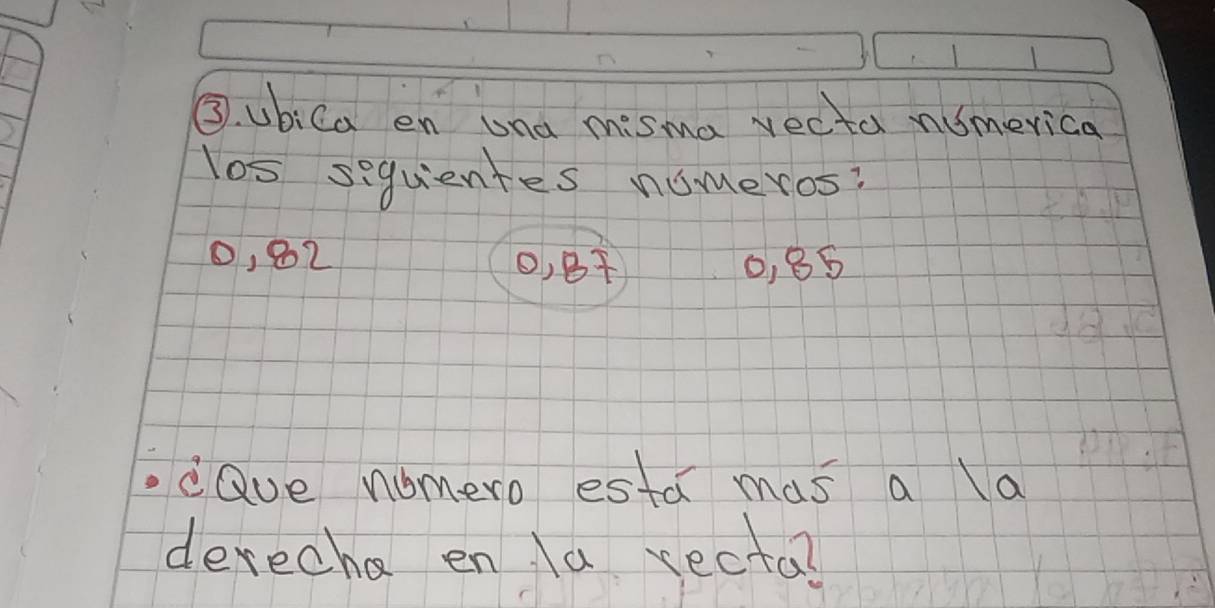 ③. Ubica en una misma recta númerica
los siguientes números:
0,82 0,87 0,85
• ¿Que número está mas a la
derecha en la recta?